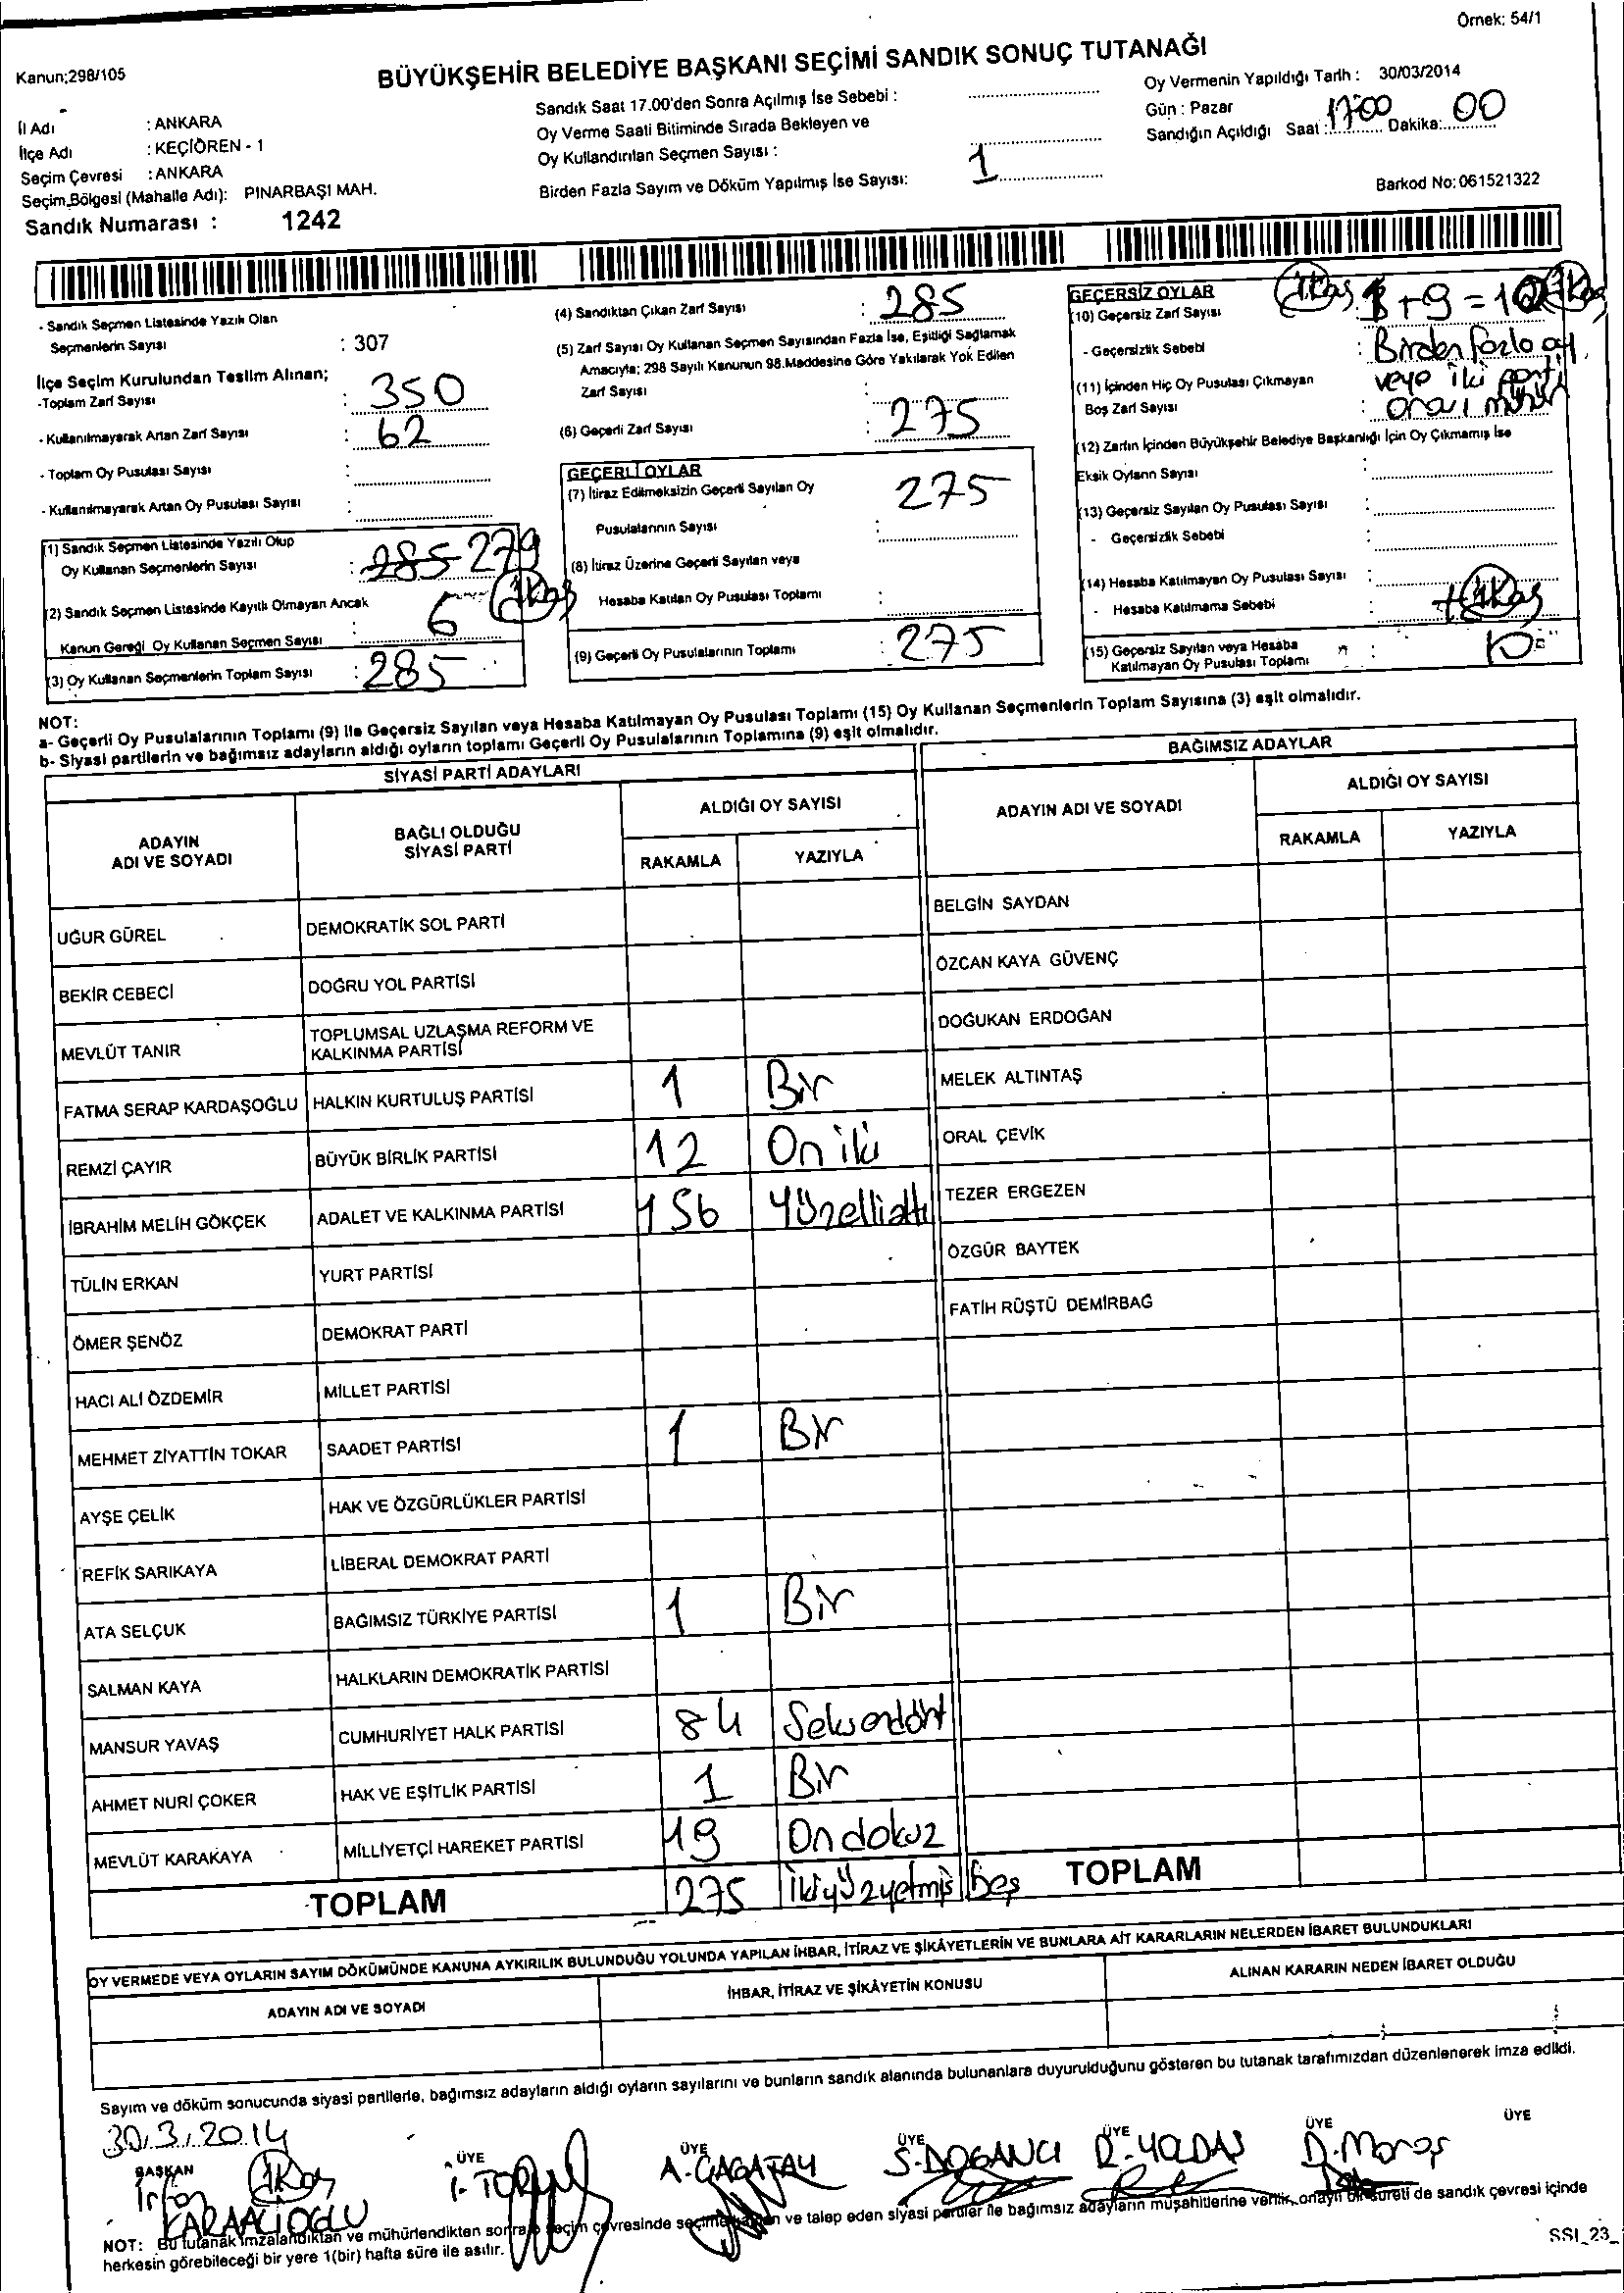 Örnek: 54/1
Kanun;298/105
BÜYÜKŞEHİR BELEDİYE BAŞKANI SEÇİMİ SANDIK SONUÇ TUTANAĞI
İl Adı : ANKARA
İlçe Adı : KEÇİÖREN - 1
Seçim Çevresi : ANKARA
Seçim Bölgesi (Mahalle Adı): PINARBAŞI MAH.
Sandık Numarası : 1242
Sandık Saat 17.00'den Sonra Açılmış İse Sebebi :
Oy Verme Saati Bitiminde Sırada Bekleyen ve
Oy Kullandırılan Seçmen Sayısı :
Birden Fazla Sayım ve Döküm Yapılmış İse Sayısı: 1
Oy Vermenin Yapıldığı Tarih : 30/03/2014
Gün : Pazar
Sandığın Açıldığı Saat : 17:00 Dakika: 00
Barkod No: 061521322
- Sandık Seçmen Listesinde Yazılı Olan
Seçmenlerin Sayısı : 307
İlçe Seçim Kurulundan Teslim Alınan;
-Toplam Zarf Sayısı : 350
- Kullanılmayarak Artan Zarf Sayısı : 62
- Toplam Oy Pusulası Sayısı :
- Kullanılmayarak Artan Oy Pusulası Sayısı :
(1) Sandık Seçmen Listesinde Yazılı Olup
Oy Kullanan Seçmenlerin Sayısı : 285 279
(2) Sandık Seçmen Listesinde Kayıtlı Olmayan Ancak
Kanun Gereği Oy Kullanan Seçmen Sayısı : 6
(3) Oy Kullanan Seçmenlerin Toplam Sayısı : 285
(4) Sandıktan Çıkan Zarf Sayısı : 285
(5) Zarf Sayısı Oy Kullanan Seçmen Sayısından Fazla İse, Eşitliği Sağlamak
Amacıyla; 298 Sayılı Kanunun 98.Maddesine Göre Yakılarak Yok Edilen
Zarf Sayısı :
(6) Geçerli Zarf Sayısı : 275
GEÇERLİ OYLAR
(7) İtiraz Edilmeksizin Geçerli Sayılan Oy
Pusulalarının Sayısı : 275
(8) İtiraz Üzerine Geçerli Sayılan veya
Hesaba Katılan Oy Pusulası Toplamı :
(9) Geçerli Oy Pusulalarının Toplamı : 275
GEÇERSİZ OYLAR
(10) Geçersiz Zarf Sayısı + 9 = 10
- Geçersizlik Sebebi : Birden fazla oy
veya iki parti
(11) İçinden Hiç Oy Pusulası Çıkmayan
Boş Zarf Sayısı : arası mühür
(12) Zarfın İçinden Büyükşehir Belediye Başkanlığı İçin Oy Çıkmamış İse
Eksik Oyların Sayısı :
(13) Geçersiz Sayılan Oy Pusulası Sayısı :
- Geçersizlik Sebebi :
(14) Hesaba Katılmayan Oy Pusulası Sayısı :
- Hesaba Katılmama Sebebi :
(15) Geçersiz Sayılan veya Hesaba
Katılmayan Oy Pusulası Toplamı : 10
NOT:
a- Geçerli Oy Pusulalarının Toplamı (9) ile Geçersiz Sayılan veya Hesaba Katılmayan Oy Pusulası Toplamı (15) Oy Kullanan Seçmenlerin Toplam Sayısına (3) eşit olmalıdır.
b- Siyasi partilerin ve bağımsız adayların aldığı oyların toplamı Geçerli Oy Pusulalarının Toplamına (9) eşit olmalıdır.
SİYASİ PARTİ ADAYLARI
ADAYIN ADI VE SOYADI
BAĞLI OLDUĞU SİYASİ PARTİ
ALDIĞI OY SAYISI
RAKAMLA YAZIYLA
UĞUR GÜREL DEMOKRATİK SOL PARTİ
BEKİR CEBECİ DOĞRU YOL PARTİSİ
MEVLÜT TANIR TOPLUMSAL UZLAŞMA REFORM VE KALKINMA PARTİSİ
FATMA SERAP KARDAŞOĞLU HALKIN KURTULUŞ PARTİSİ 1 Bir
REMZİ ÇAYIR BÜYÜK BİRLİK PARTİSİ 12 On iki
İBRAHİM MELİH GÖKÇEK ADALET VE KALKINMA PARTİSİ 156 Yüzellialtı
TÜLİN ERKAN YURT PARTİSİ
ÖMER ŞENÖZ DEMOKRAT PARTİ
HACI ALİ ÖZDEMİR MİLLET PARTİSİ
MEHMET ZİYATTİN TOKAR SAADET PARTİSİ 1 Bir
AYŞE ÇELİK HAK VE ÖZGÜRLÜKLER PARTİSİ
REFİK SARIKAYA LİBERAL DEMOKRAT PARTİ
ATA SELÇUK BAĞIMSIZ TÜRKİYE PARTİSİ 1 Bir
SALMAN KAYA HALKLARIN DEMOKRATİK PARTİSİ
MANSUR YAVAŞ CUMHURİYET HALK PARTİSİ 84 Seksendört
AHMET NURİ ÇOKER HAK VE EŞİTLİK PARTİSİ 1 Bir
MEVLÜT KARAKAYA MİLLİYETÇİ HAREKET PARTİSİ 19 Ondokuz
TOPLAM 275 İkiyüzyetmiş beş
BAĞIMSIZ ADAYLAR
ADAYIN ADI VE SOYADI
ALDIĞI OY SAYISI
RAKAMLA YAZIYLA
BELGİN SAYDAN
ÖZCAN KAYA GÜVENÇ
DOĞUKAN ERDOĞAN
MELEK ALTINTAŞ
ORAL ÇEVİK
TEZER ERGEZEN
ÖZGÜR BAYTEK
FATİH RÜŞTÜ DEMİRBAĞ
TOPLAM
OY VERMEDE VEYA OYLARIN SAYIM DÖKÜMÜNDE KANUNA AYKIRILIK BULUNDUĞU YOLUNDA YAPILAN İHBAR, İTİRAZ VE ŞİKÂYETLERİN VE BUNLARA AİT KARARLARIN NELERDEN İBARET BULUNDUKLARI
ADAYIN ADI VE SOYADI
İHBAR, İTİRAZ VE ŞİKÂYETİN KONUSU
ALINAN KARARIN NEDEN İBARET OLDUĞU
Sayım ve döküm sonucunda siyasi partilerle, bağımsız adayların aldığı oyların sayılarını ve bunların sandık alanında bulunanlara duyurulduğunu gösteren bu tutanak tarafımızdan düzenlenerek imza edildi.
30.3.2014
BAŞKAN ÜYE ÜYE ÜYE ÜYE ÜYE ÜYE
İrfan KARAALİOĞLU
A. ÇAĞATAY
S. DOĞANCI
R. YOLDAŞ
NOT: Bu tutanak imzalandıktan ve mühürlendikten sonra seçim çevresinde ve talep eden siyasi partiler ile bağımsız adayların müşahitlerine verilir, onaylı bir sureti de sandık çevresi içinde
herkesin görebileceği bir yere 1(bir) hafta süre ile asılır.
SSI_23_